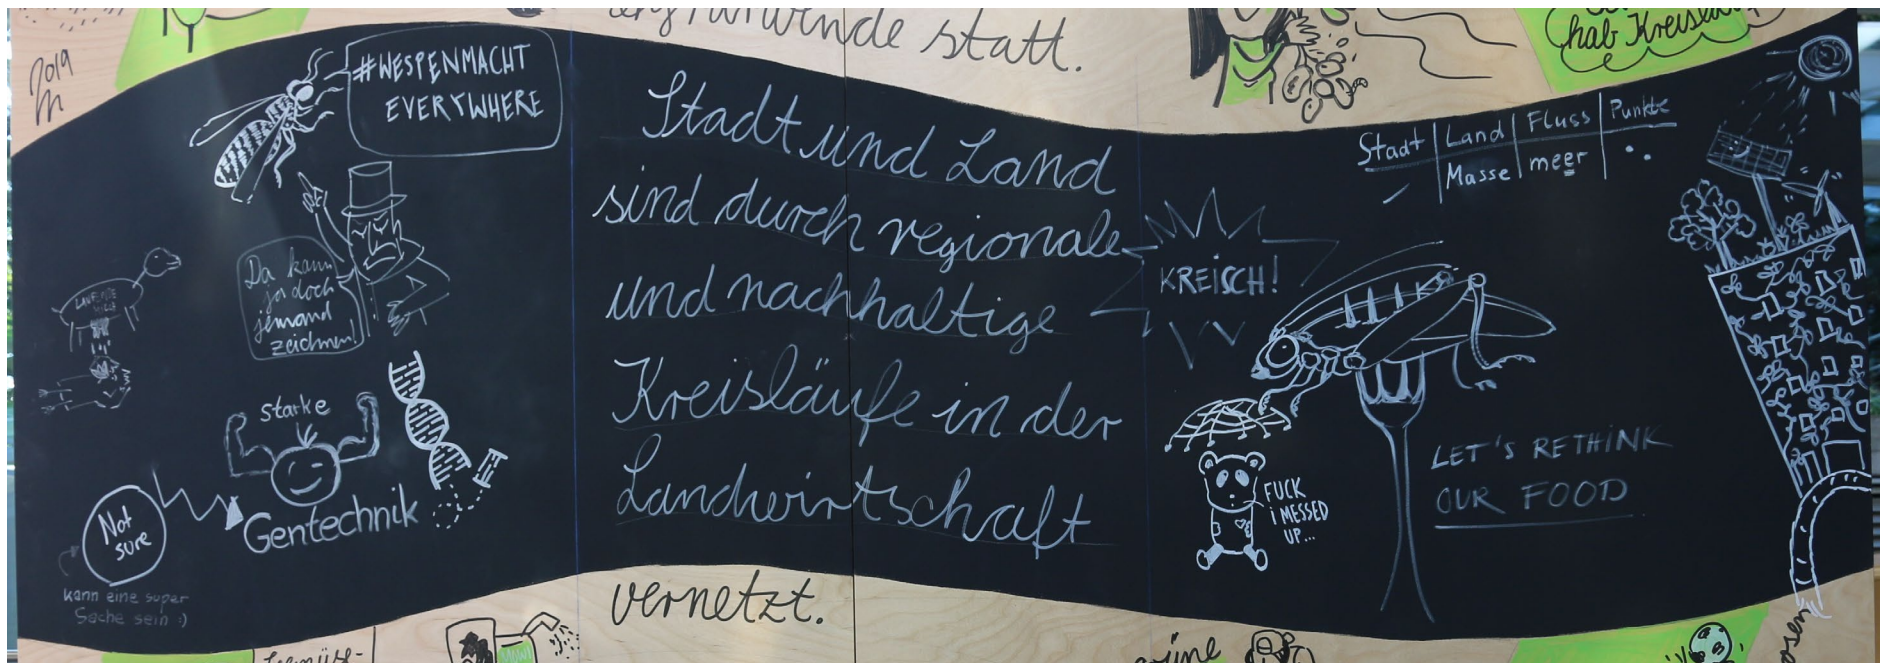 2019
statt.
hab
#WESPENMACHT
EVERYWHERE
Da kann
ja doch
jemand
zeichnen!
LAUFENDE
starke
Gentechnik
Not
sure
kann eine super
Sache sein :)
Stadt und Land
sind durch regionale
und nachhaltige
Kreisläufe in der
Landwirtschaft
vernetzt.
KREISCH!
Stadt Land Fluss Punkte
Masse meer
FUCK
i MESSED
UP...
LET'S RETHINK
OUR FOOD
grüne